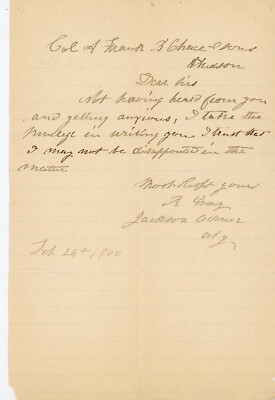 Col A Frank B Chace & Sons
Hudson
Dear Sirs
Not having heard from you
and getting anxious, I take the
privlege in writing you I trust that
I may not be disappointed in the
matter
Most Respt yours
A Gray
Jackson Corner
N y
Feb 24th 1900